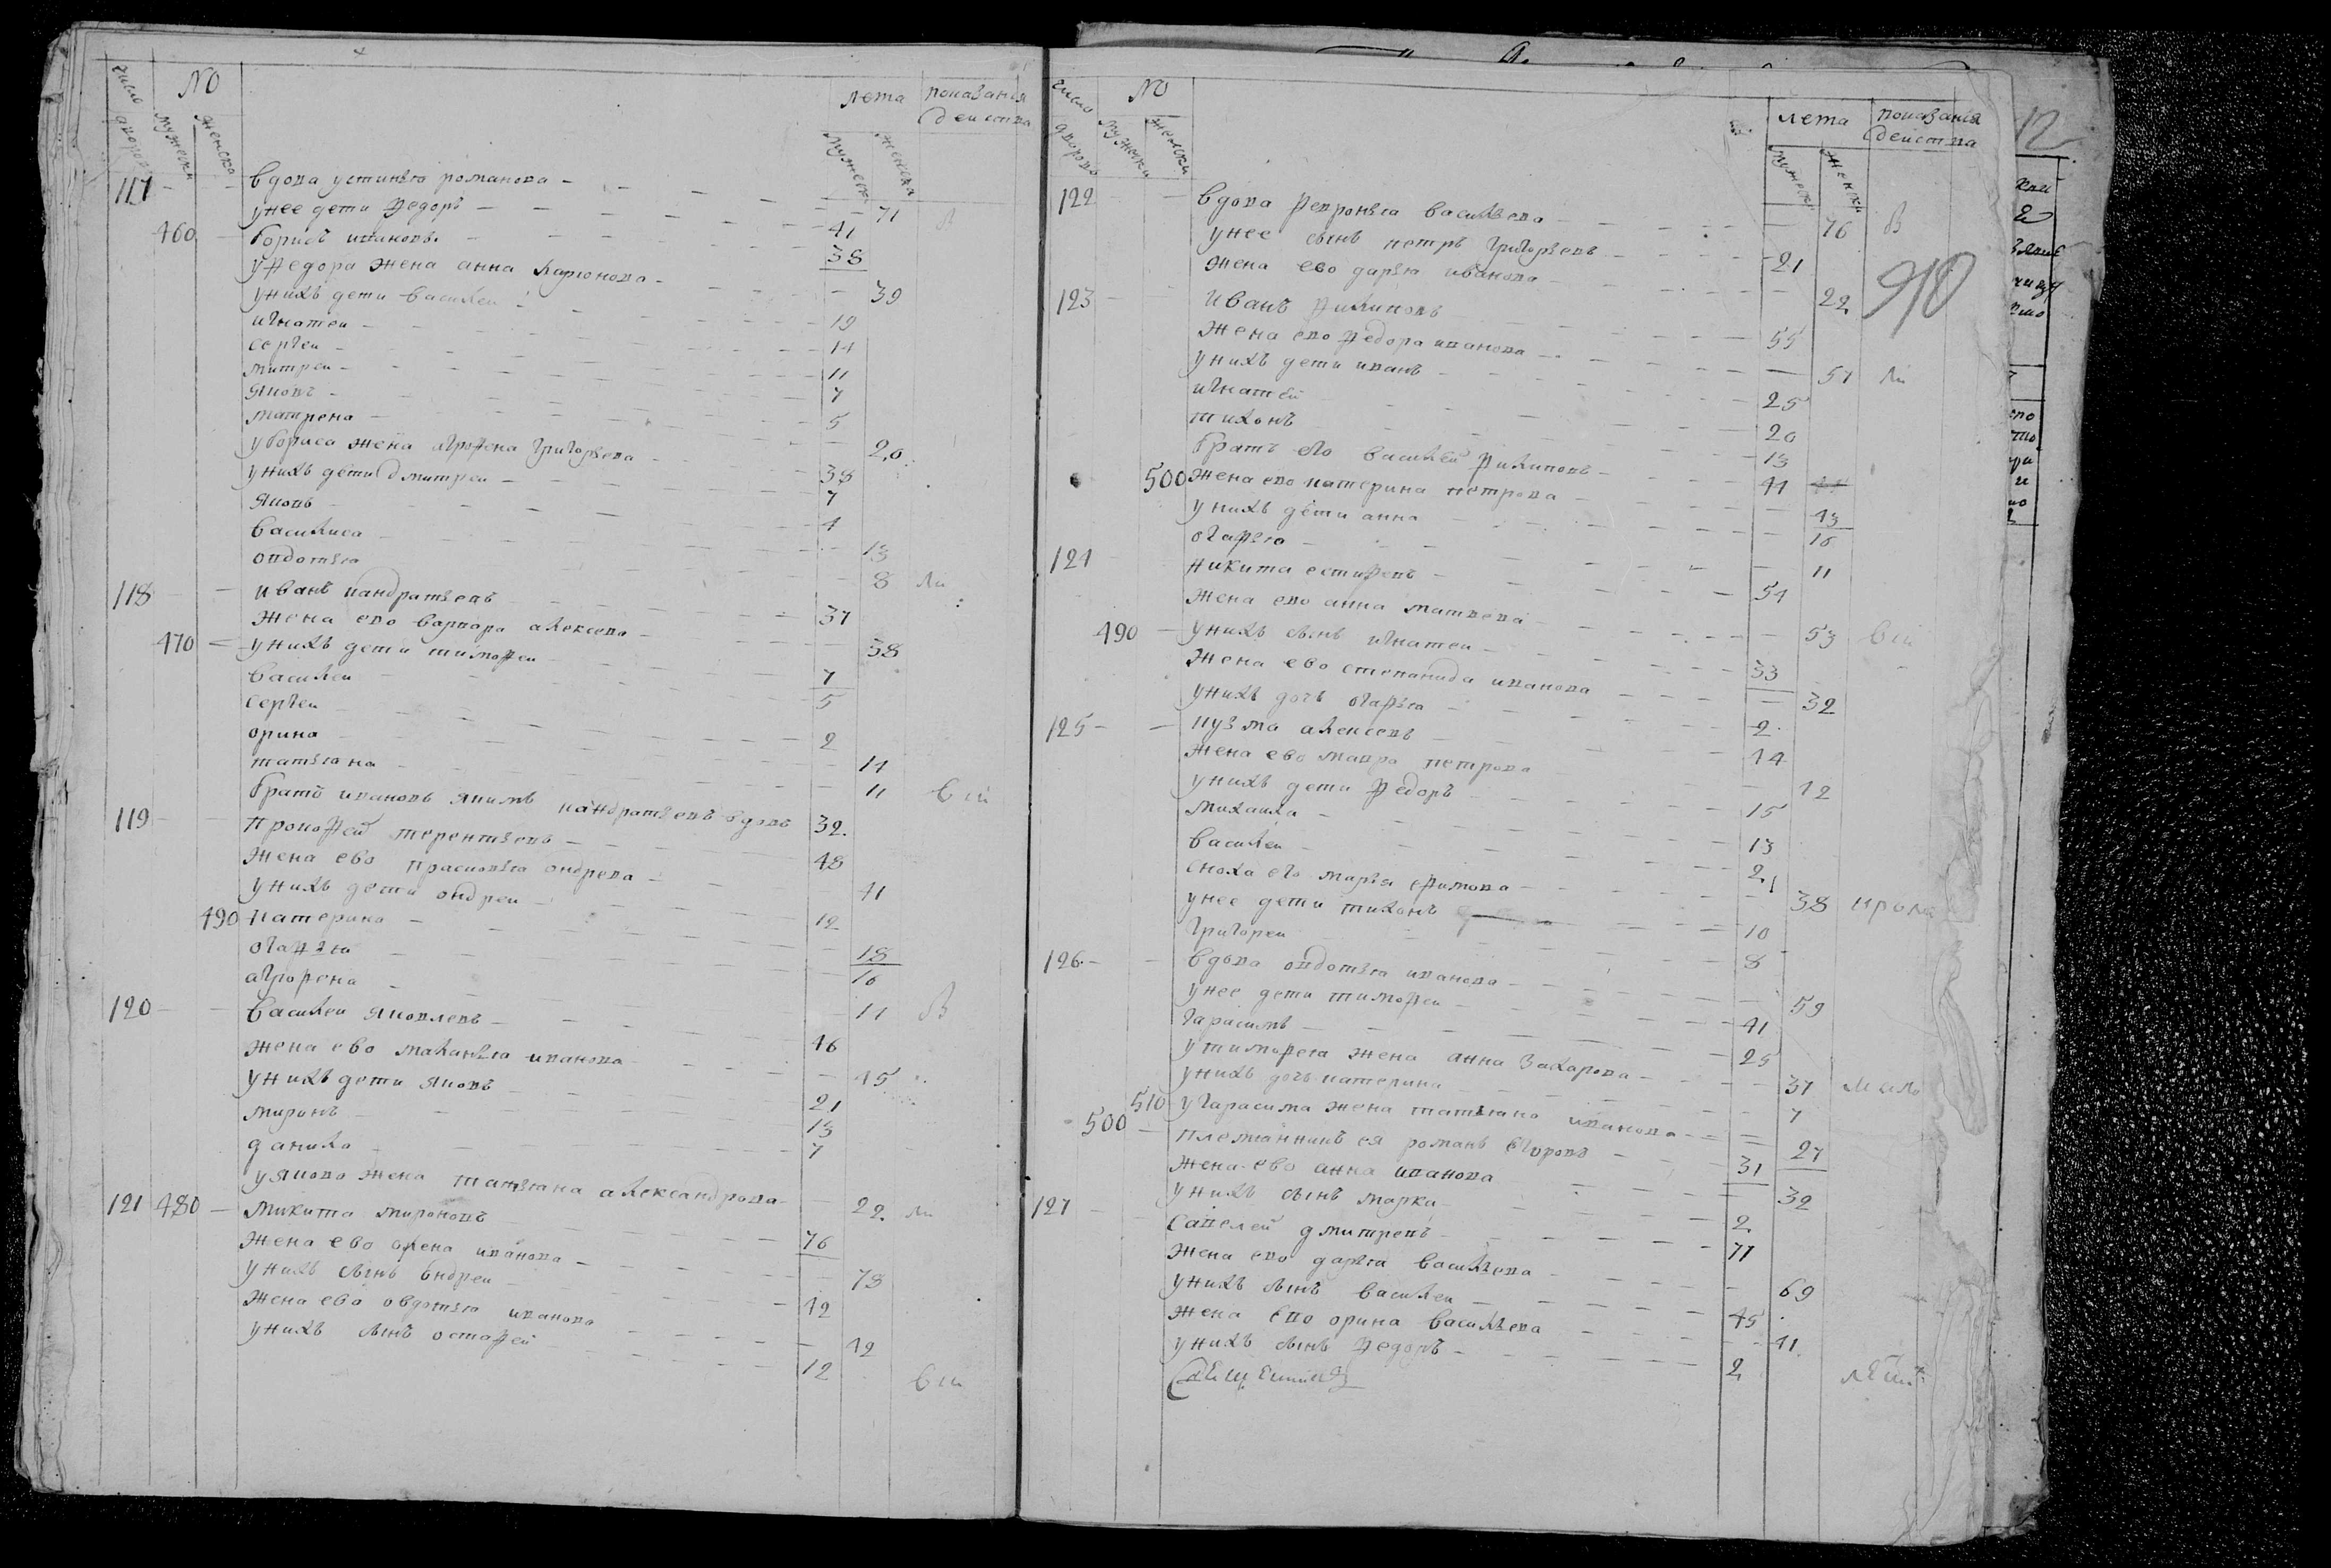 число дворовъ
№
мужески
женски
лета
показания действа
мужеск
женска
117 вдова устинья романова 71
унее дети федоръ 41
460 борисъ ивановъ 38
уфедора жена анна 39
унихъ дети василеи 19
игнатеи 14
сергеи 11
митреи 7
яковъ 5
матрена 20
убориса жена агрофена григорьева 38
унихъ дети дмитреи 7
яковъ 4
василиса 13
овдотья 8
118 иванъ кандратьевъ 37
жена ево варвара алексева 38
470 унихъ дети тимофеи 7
василеи 5
сергеи 2
орина 14
татьяна 11
братъ ивановъ якимъ кандратьевъ вдовъ 32
119 прокофей терентьевъ 48
жена ево прасковья ондрева 41
унихъ дети ондреи 12
490 катерина 18
огафья 16
агрофена 11
120 василеи яковлевъ 46
жена ево маланья иванова 45
унихъ дети яковъ 21
миронъ 13
данила 7
уякова жена татьяна александрова 22
121 480 микита мироновъ 76
жена ево олена иванова 78
унихъ сынъ андреи 42
жена ево овдотья иванова 42
унихъ сынъ остафей 12
число дворовъ
№
мужески
женски
лета
показания действа
мужески
женски
12
122 вдова февронья васильева 76 в
унее сынъ петръ григорьевъ 21
жена ево дарья иванова 22
123 иванъ филиповъ 55
жена ево федора иванова 51
унихъ дети иванъ 25
игнатей 20
тихонъ 13
братъ его василей филиповъ 41
500 жена ево катерина петрова 43
унихъ дети анна 16
огафья 11
124 никита естифевъ 54
жена ево анна матвева 53
490 унихъ сынъ игнатеи 33
жена ево степанида иванова 32
унихъ дочь огафья 2
125 кузма алексевъ 44
жена ево мавра петрова 42
унихъ дети федоръ 15
михаила 13
василеи 2
сноха его марья ефимова 38
унее дети тихонъ 10
григореи 8
126 вдова овдотья иванова 59
унее дети тимофеи 41
гарасимъ 25
утимофея жена анна захарова 37
унихъ дочь катерина 7
510 угарасима жена татьяна иванова 27
500 племянникъ ея романъ егоровъ 31
жена ево анна иванова 32
унихъ сынъ марка 2
127 савелей дмитревъ 71
жена ево дарья васильева 69
унихъ сынъ василеи 45
жена ево орина васильева 41
унихъ сынъ федоръ 2